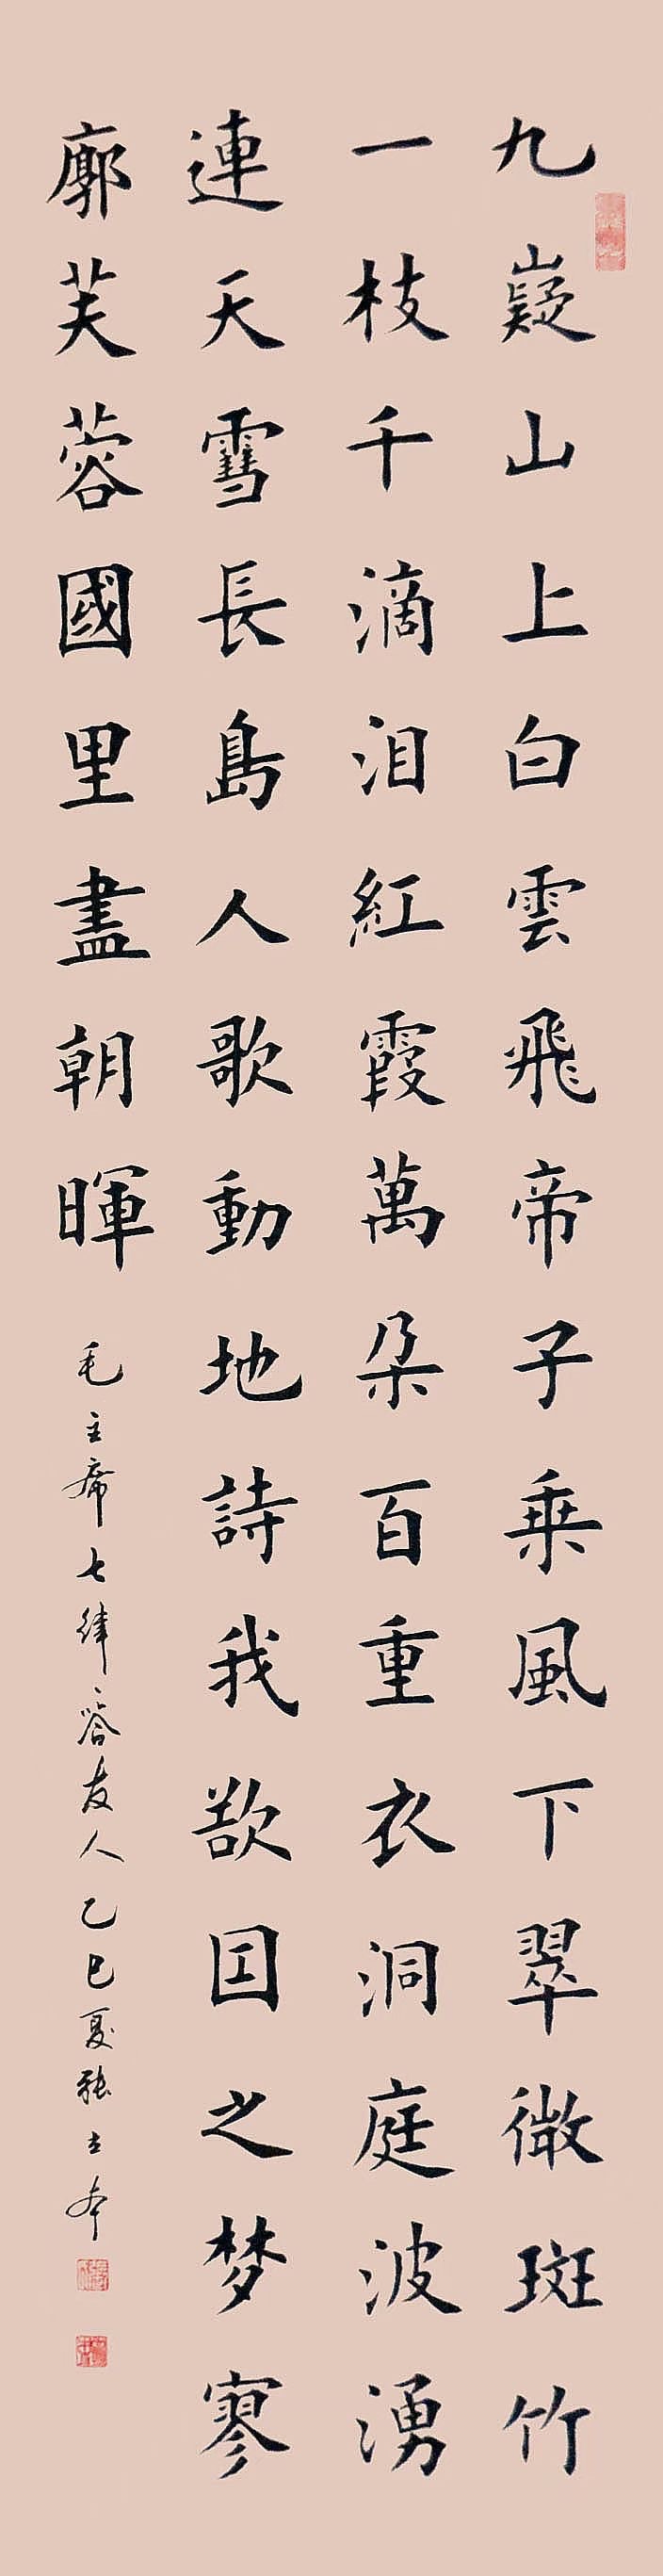 九嶷山上白雲飛帝子乗風下翠微斑竹
一枝千滴泪紅霞萬朵百重衣洞庭波湧
連天雪長島人歌動地詩我欲囙之梦寥
廓芙蓉國里盡朝暉 毛主席七律答友人乙巳夏張立本